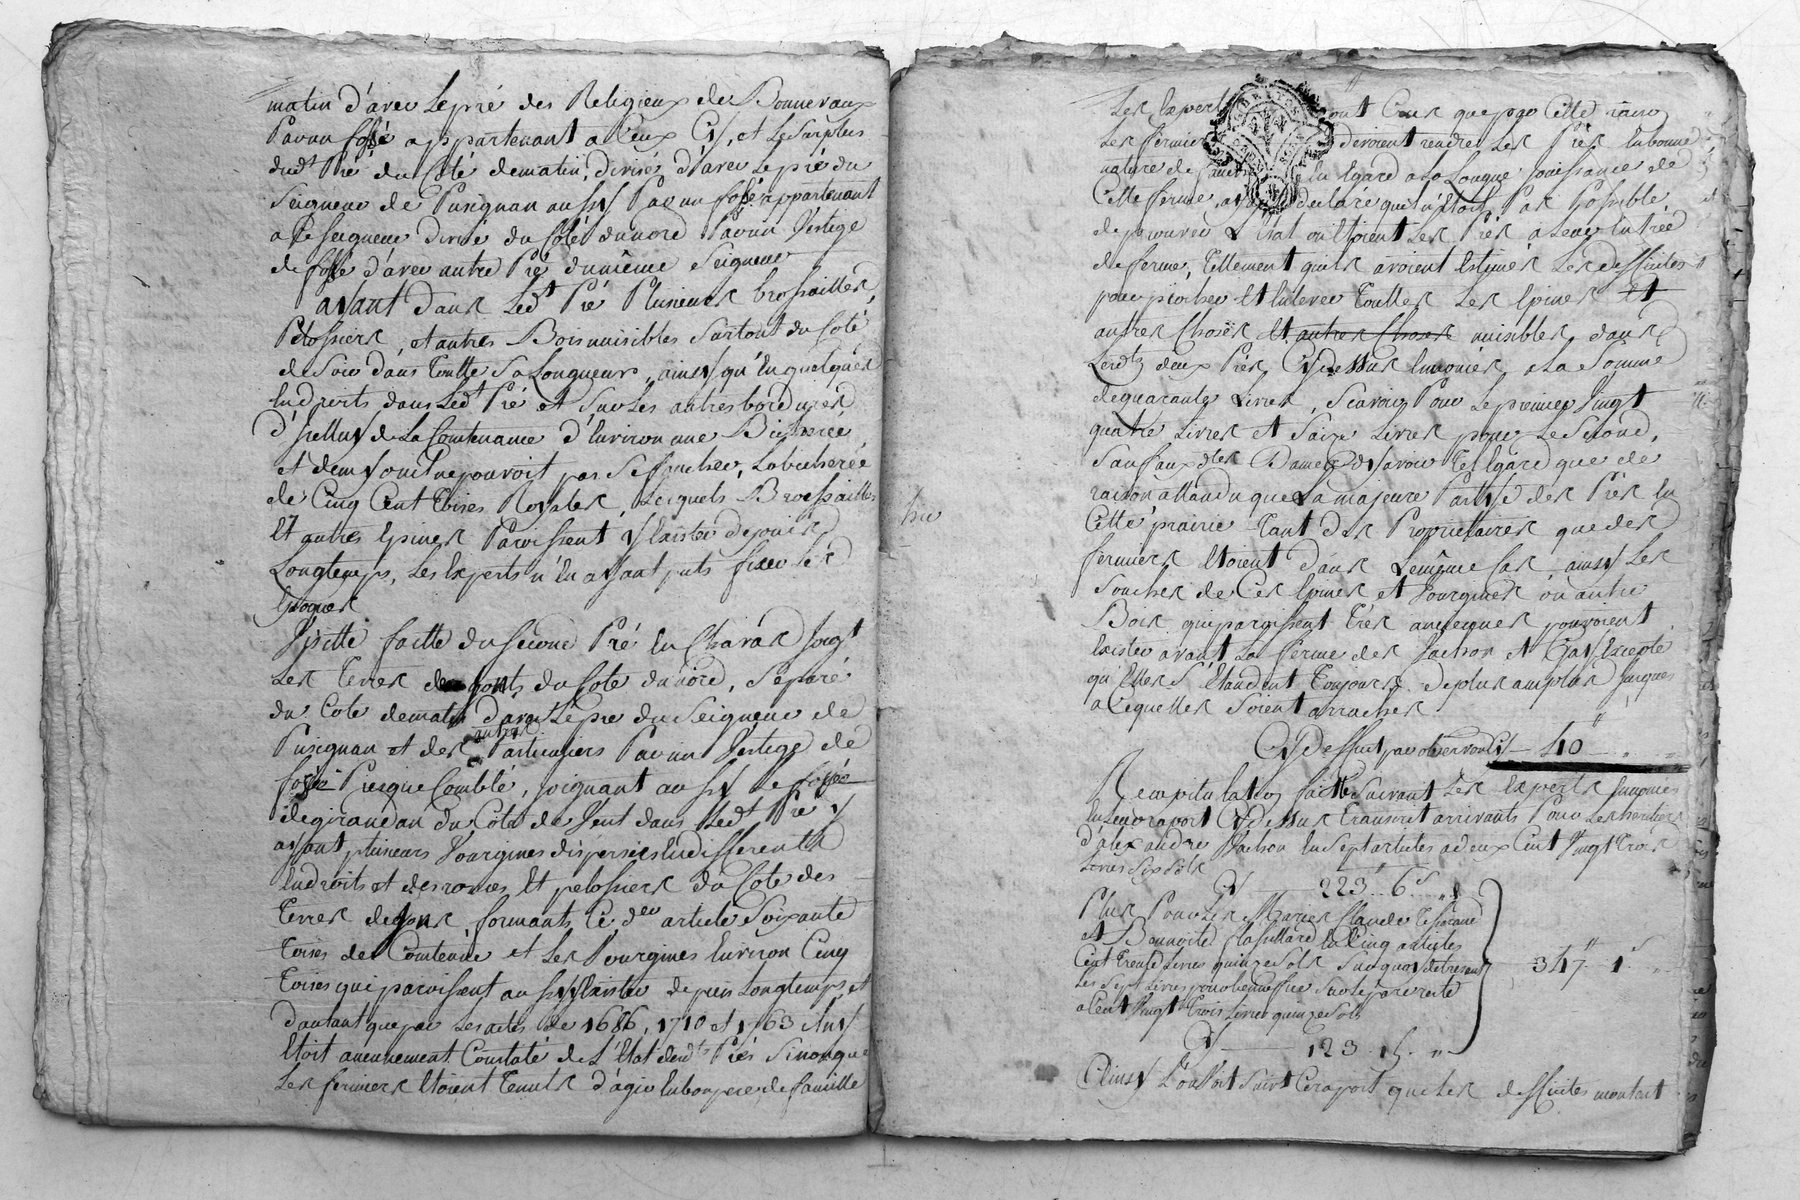 matin d'avec Le pré des Religieux de Bonnevaux
Par un fossé appartenant a Ceux Cy, et Le Surplus
dud.t Pré du Coté de matin, divisé d'avec Le pré du
Seigneur de Pusignan aussy Par un fossé appartenant
a Ce Seigneur Divisé du Coté du nord Par un Vestige
de fossé d'avec autre Pré du même Seigneur
ayant dans Led.t Pré Plusieurs brossailles,
Pelossiers, et autres Bois nuisibles Surtout du Coté
de Soir dans toutte Sa Longueur, ainsy qu'en quelques
Endroits dans Led.t Pré et Sur Les autres bordures,
d'Icelluy de La Contenance d'Environ une Bicherée
et demy Soit ne pouvoit pas Se faucher, La bicherée
de Cinq Cent toises Royales, Lesquels Brossailles
Et autres Epines Paroissent y Exister depuis
Longtemps, Les Experts n'En ayant puts fixer Les
Epoques
Visitte faitte du Second Pré En Charas Joigt
Les Terres de gonts du Coté du nord, Séparé
du Coté de matin d'avec Le pré du Seigneur de
autres
Pusignan et des Particuliers Par un Vestige de
fossé Presque Comblé, Joignant aussy Le fossé
de girandan du Coté de Vent dans Led.t Pré y
ayant plusieurs Vourgines dispersées En differents
Endroits et des ronces Et pelossiers du Coté des
Terres de gons, formants Ce d.er article Soixante
Toises de Contenue et Les Vourgines Environ Cinq
Toises qui paroissent aussy Exister depuis Longtemps, et
d'autant que par Les actes de 1686, 1710 et 1763 il n'y
Etoit aucunement Constaté de L'Etat desd.ts Prés Sinon que
Les fermiers Etoient Tenuts d'agir En bon pere de famille
Les Experts ont Crus que par Cette raison
Les fermiers devoient rendre Les Prés En bonne
nature de En Egard a La Longue Jouissance de
Cette ferme, ayant declaré qu'il n'Etoit Pas Possible,
de prouver L'Etat où Etoient Les Prés a Leur Entrée
de ferme, Tellement qu'ils avoient Estimés Les deffuites
pour piocher Et Enlever Touttes Les Epines Et
autres Choses Et autres Choses nuisibles dans
Lesd.ts deux Prés, Cy dessus Enoncés, a La Somme
de quarante Livres, Scavoir Pour Le premier Vingt
quatre Livres et Saize Livres pour Le Second,
Sauf aux d.tes Dames d'y avoir Tel Egard que de
raison attandu que La majeure Partye des Prés En
Cette prairie Tant des Proprietaires que des
fermiers Etoient dans Le même Cas ainsy Les
Souches de Ces Epines et Vourgines où autre
Bois qui paroissent trés anciennes pouvoient
Exister avant La ferme des Vachon et Gay Excepté
qu'Elles S'Etandent Toujours de plus en plus Jusques
a Cequ'elles Soient arrachés
Cy deffuit par observation Cy 40
Recapitulation faitte Suivant Les Experts Susnomés
En Leur raport Cy dessus transcrit arrivants Pour Les heritiers
d'alexandre Vachon En Sept articles a deux Cent Vingt Trois
Livres Six Sols
Cy 223 6 s
Plus Pour Les Mariés Claude
et Benoite En Cinq articles
Cent Trente Livres quinze Sols Surquoy detresent
Les Sept Livres pour bienne fire Sur Le pave reste
a Cent Vingt Trois Livres quinze Sols
347 1 s
Cy 123 15
Ainsy L'on Voit Suivt Ce raport que Les deffuites montent